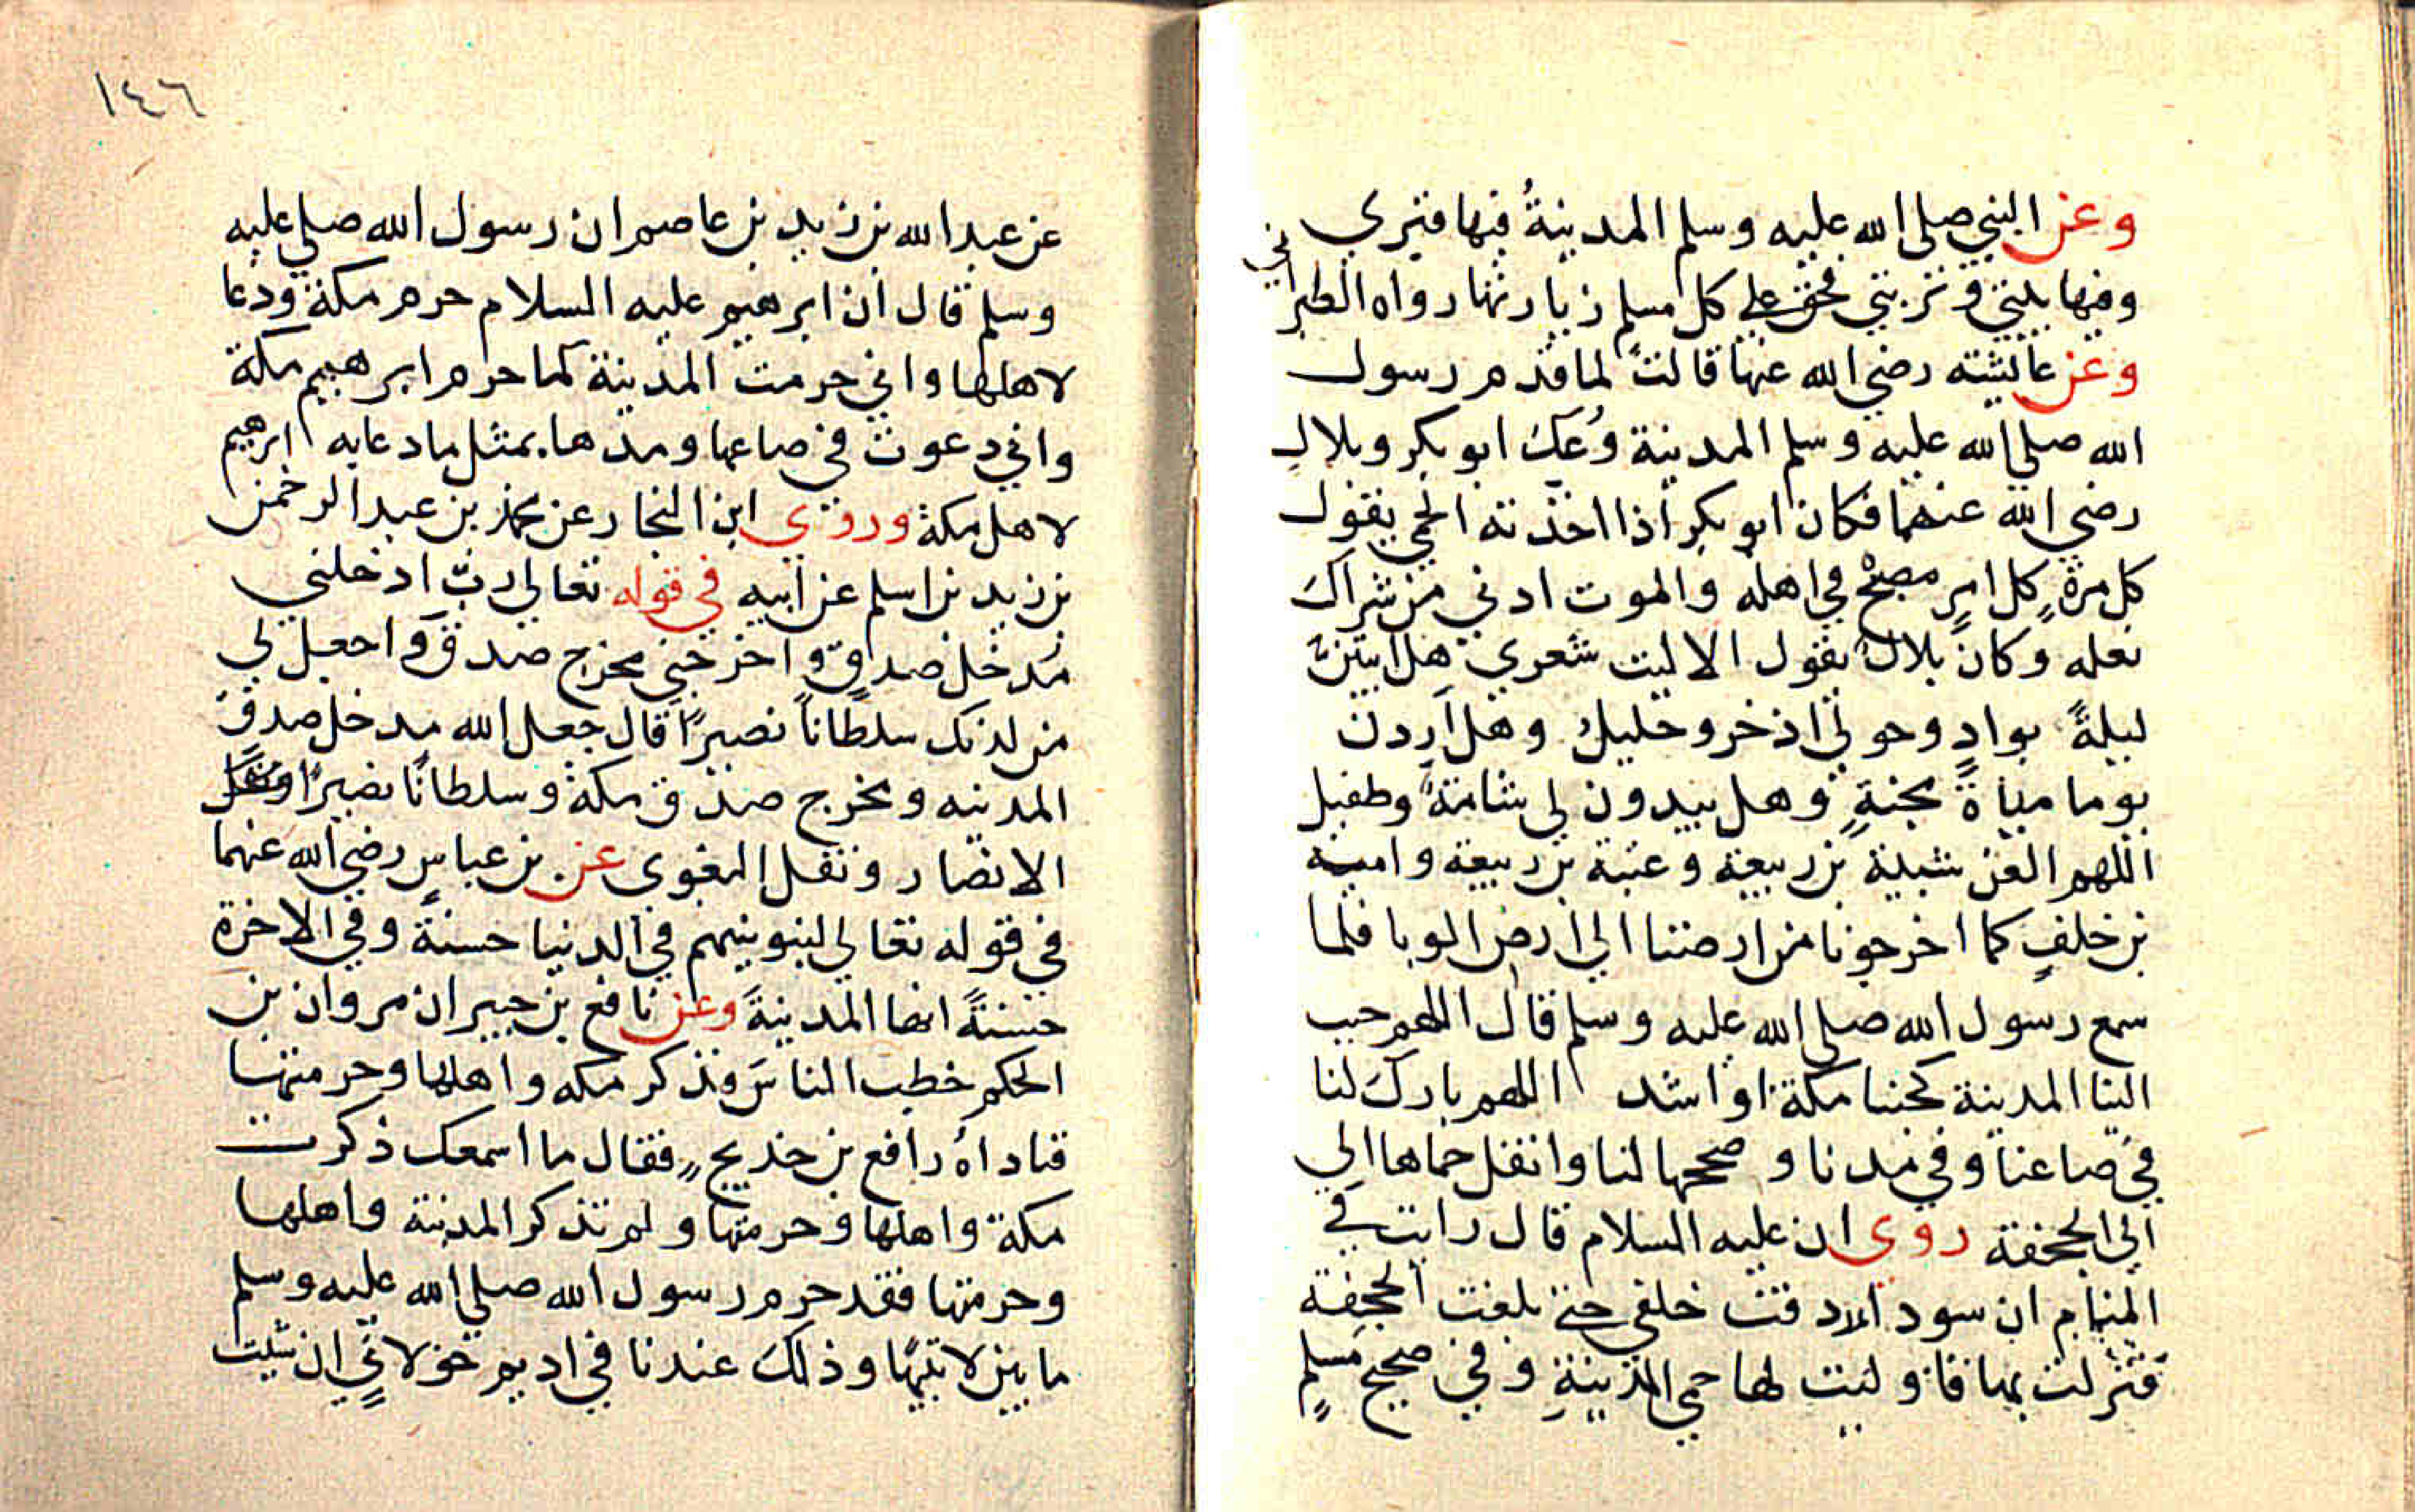 وعن النبي صلى الله عليه وسلم المدينةُ فيها قبري
وفيها بيتي وتربتي فحق على كل مسلم زيارتها رواه الطبراني
وعن عائشته رضي الله عنها قالت لما قدم رسول
الله صلى الله عليه وسلم المدينة وُعك ابو بكر وبلال
رضي الله عنهما فكان ابو بكر اذا اخذته الحمي يقول
كل مرة كل امرٍ مصبحٌ في اهله والموت ادني من شراك
نعله وكان بلالٌ يقول الا ليت شعري هل ابيتنَّ
ليلةً بوادٍ وحولي اذخر وجليل وهل اَرِدن
يوما مياةً مجنةٍ وهل يبدون لي شامةٌ وطفيل
اللهم العن شيبة بن ربيعة وعتبة بن ربيعة وامية
بن خلفٍ كما اخرجونا من ارضنا الي ارض الوبا فلما
سمع رسول الله صلى الله عليه وسلم قال اللهم حبب
الينا المدينة كحبنا مكة او اشد اللهم بارك لنا
في صاعنا وفي مدنا وصححها لنا وانقل حماها الي
الي الجحفة روي ان عليه السلام قال رايت في
المنام ان سود الاردفت خلفي حتى بلغت الجحفة
فنزلت بها فاولت لها حمي المدينةِ وفي صحيح مسلمٍ
١٤٦
عن عبدا الله بن زيد بن عاصم ان رسول الله صلى عليه
وسلم قال ان ابرهيم عليه السلام حرم مكة ودعا
لاهلها واني حرمت المدينة كما حرم ابرهيم مكة
واني دعوت في صاعها ومدها بمثل ما دعابه ابرهيم
لاهل مكة وروي ابن النجار عن محمد بن عبد الرحمن
بن زيد بن اسلم عن ابيه في قوله تعالي ربّ ادخلني
مُدخل صدقٍ واخرجني مخرج صدق واجعل لي
من لدنك سلطاناً نصيرًا قال جعل الله مدخل صدق
المدينه ومخرج صدق مكة وسلطانًا نصيرًا
الانصار ونقل البغوي عن بن عباسٍ رضي الله عنهما
في قوله تعالي لنبوينهم في الدنيا حسنةً وفي الاخرة
حسنةً انها المدينةً وعن نافع بن جبير ان مروان بن
الحكم خطب الناسَ فذكر مكه واهلها وحرمتها
فناداهُ رافع بن خديج فقال ما اسمعك ذكرت
مكة واهلها وحرمتها ولم تذكر المدينة واهلها
وحرمتها فقد حرم رسول الله صلي الله عليه وسلم
ما بين لابتيها وذلك عندنا في اديم خولانيٍ ان شيت